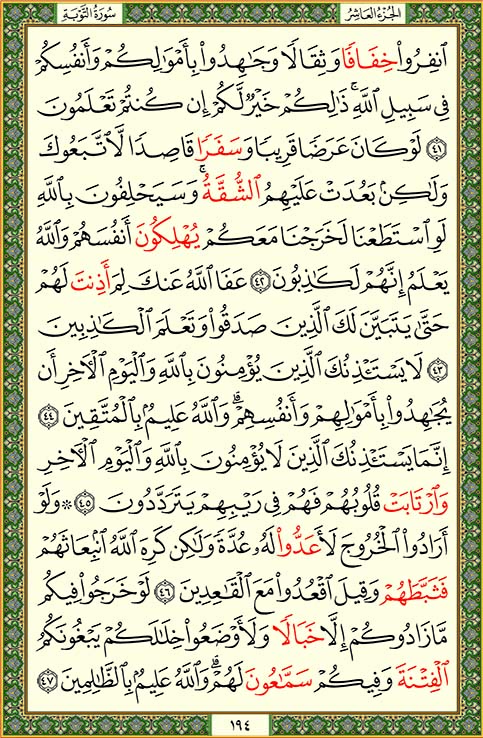 سُورَةُ التَّوْبَةِ الجُزْءُ العَاشِرُ
ٱنفِرُوا۟ خِفَافًا وَثِقَالًا وَجَٰهِدُوا۟ بِأَمْوَٰلِكُمْ وَأَنفُسِكُمْ
فِى سَبِيلِ ٱللَّهِ ۚ ذَٰلِكُمْ خَيْرٌ لَّكُمْ إِن كُنتُمْ تَعْلَمُونَ
٤١ لَوْ كَانَ عَرَضًا قَرِيبًا وَسَفَرًا قَاصِدًا لَّٱتَّبَعُوكَ
وَلَٰكِنۢ بَعُدَتْ عَلَيْهِمُ ٱلشُّقَّةُ ۚ وَسَيَحْلِفُونَ بِٱللَّهِ
لَوِ ٱسْتَطَعْنَا لَخَرَجْنَا مَعَكُمْ يُهْلِكُونَ أَنفُسَهُمْ وَٱللَّهُ
يَعْلَمُ إِنَّهُمْ لَكَٰذِبُونَ ٤٢ عَفَا ٱللَّهُ عَنكَ لِمَ أَذِنتَ لَهُمْ
حَتَّىٰ يَتَبَيَّنَ لَكَ ٱلَّذِينَ صَدَقُوا۟ وَتَعْلَمَ ٱلْكَٰذِبِينَ
٤٣ لَا يَسْتَـْٔذِنُكَ ٱلَّذِينَ يُؤْمِنُونَ بِٱللَّهِ وَٱلْيَوْمِ ٱلْـَٔاخِرِ أَن
يُجَٰهِدُوا۟ بِأَمْوَٰلِهِمْ وَأَنفُسِهِمْ ۗ وَٱللَّهُ عَلِيمٌۢ بِٱلْمُتَّقِينَ ٤٤
إِنَّمَا يَسْتَـْٔذِنُكَ ٱلَّذِينَ لَا يُؤْمِنُونَ بِٱللَّهِ وَٱلْيَوْمِ ٱلْـَٔاخِرِ
وَٱرْتَابَتْ قُلُوبُهُمْ فَهُمْ فِى رَيْبِهِمْ يَتَرَدَّدُونَ ٤٥ ۞ وَلَوْ
أَرَادُوا۟ ٱلْخُرُوجَ لَأَعَدُّوا۟ لَهُۥ عُدَّةً وَلَٰكِن كَرِهَ ٱللَّهُ ٱنۢبِعَاثَهُمْ
فَثَبَّطَهُمْ وَقِيلَ ٱقْعُدُوا۟ مَعَ ٱلْقَٰعِدِينَ ٤٦ لَوْ خَرَجُوا۟ فِيكُم
مَّا زَادُوكُمْ إِلَّا خَبَالًا وَلَأَوْضَعُوا۟ خِلَٰلَكُمْ يَبْغُونَكُمُ
ٱلْفِتْنَةَ وَفِيكُمْ سَمَّٰعُونَ لَهُمْ ۗ وَٱللَّهُ عَلِيمٌۢ بِٱلظَّٰلِمِينَ ٤٧
١٩٤